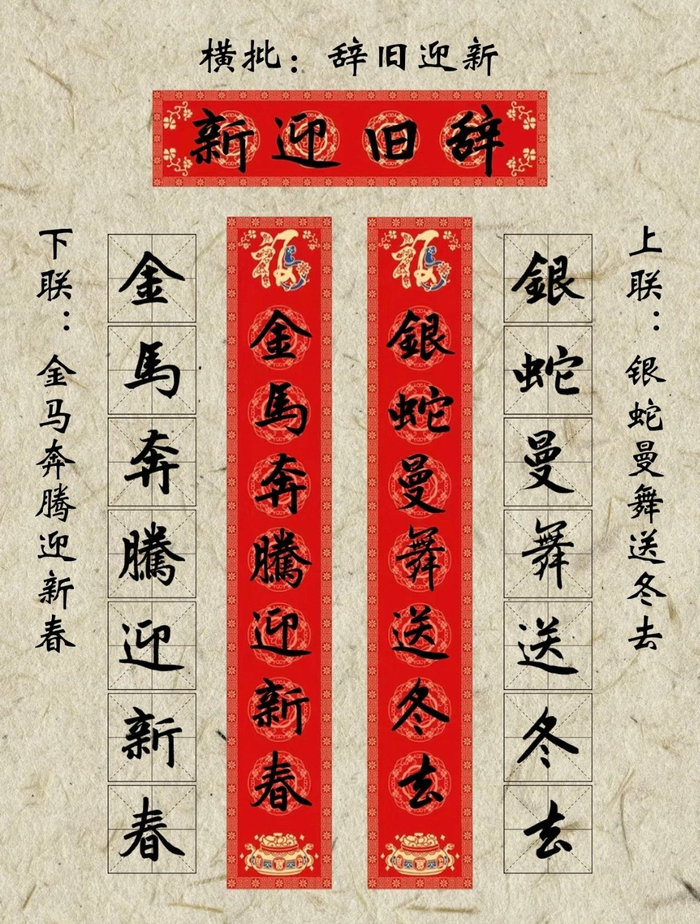 横批：辞旧迎新
辞旧迎新
上联：银蛇曼舞送冬去
銀蛇曼舞送冬去
銀蛇曼舞送冬去
福
金馬奔騰迎新春
福
金馬奔騰迎新春
下联：金马奔腾迎新春